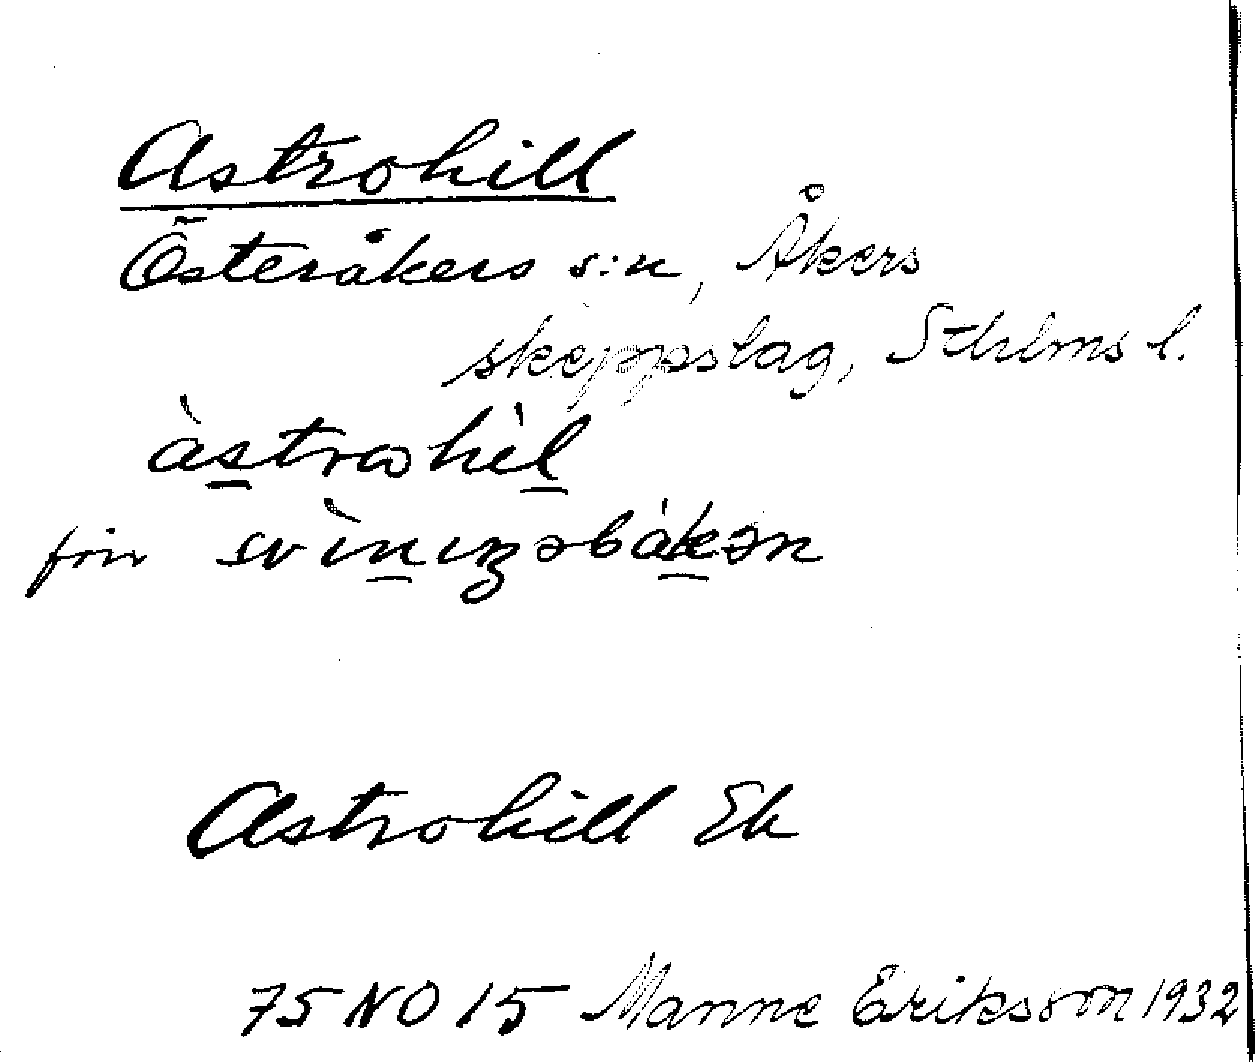 Astrohill
Österåkers s:n, Åkers
skeppslag, Sthlms l.
àstrohìl
förr svìnıŋsbákən
Astrohill Ek
75 NO 15 Manne Eriksson 1932